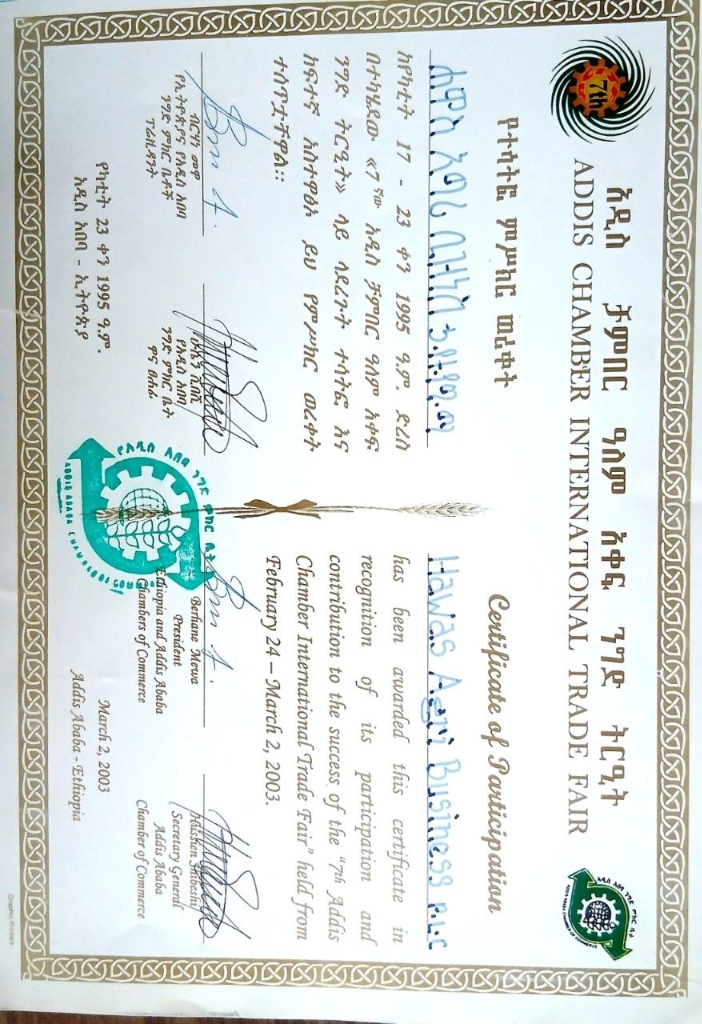 አዲስ ቻምበር ዓለም አቀፍ ንግድ ትርዒት
ADDIS CHAMBER INTERNATIONAL TRADE FAIR
7th
የተሳትፎ ምሥክር ወረቀት
ሐዋስ አግሪ ቢዝነስ ኃ.የተ.የግ.ማ
ከየካቲት 17 - 23 ቀን 1995 ዓ.ም. ድረስ
በተካሄደው «7ኛው አዲስ ቻምበር ዓለም አቀፍ
ንግድ ትርዒት» ላይ ላደረጉት ተሳትፎ እና
ከፍተኛ አስተዋፅኦ ይህ የምሥክር ወረቀት
ተሰጥቷቸዋል።
ብርሃነ መዋ
የኢትዮጵያና የአዲስ አበባ
ንግድ ምክር ቤቶች
ፕሬዚዳንት
የአዲስ አበባ
ንግድ ምክር ቤት
ዋና ፀሐፊ
የካቲት 23 ቀን 1995 ዓ.ም.
አዲስ አበባ - ኢትዮጵያ
Certificate of Participation
Hawas Agri Business P.L.C
has been awarded this certificate in
recognition of its participation and
contribution to the success of the "7th Addis
Chamber International Trade Fair" held from
February 24 – March 2, 2003.
Berhane Mewa
President
Ethiopia and Addis Ababa
Chambers of Commerce
Secretary General
Addis Ababa
Chamber of Commerce
March 2, 2003
Addis Ababa - Ethiopia
የአዲስ አበባ ንግድ ምክር ቤት
Graphic Printers